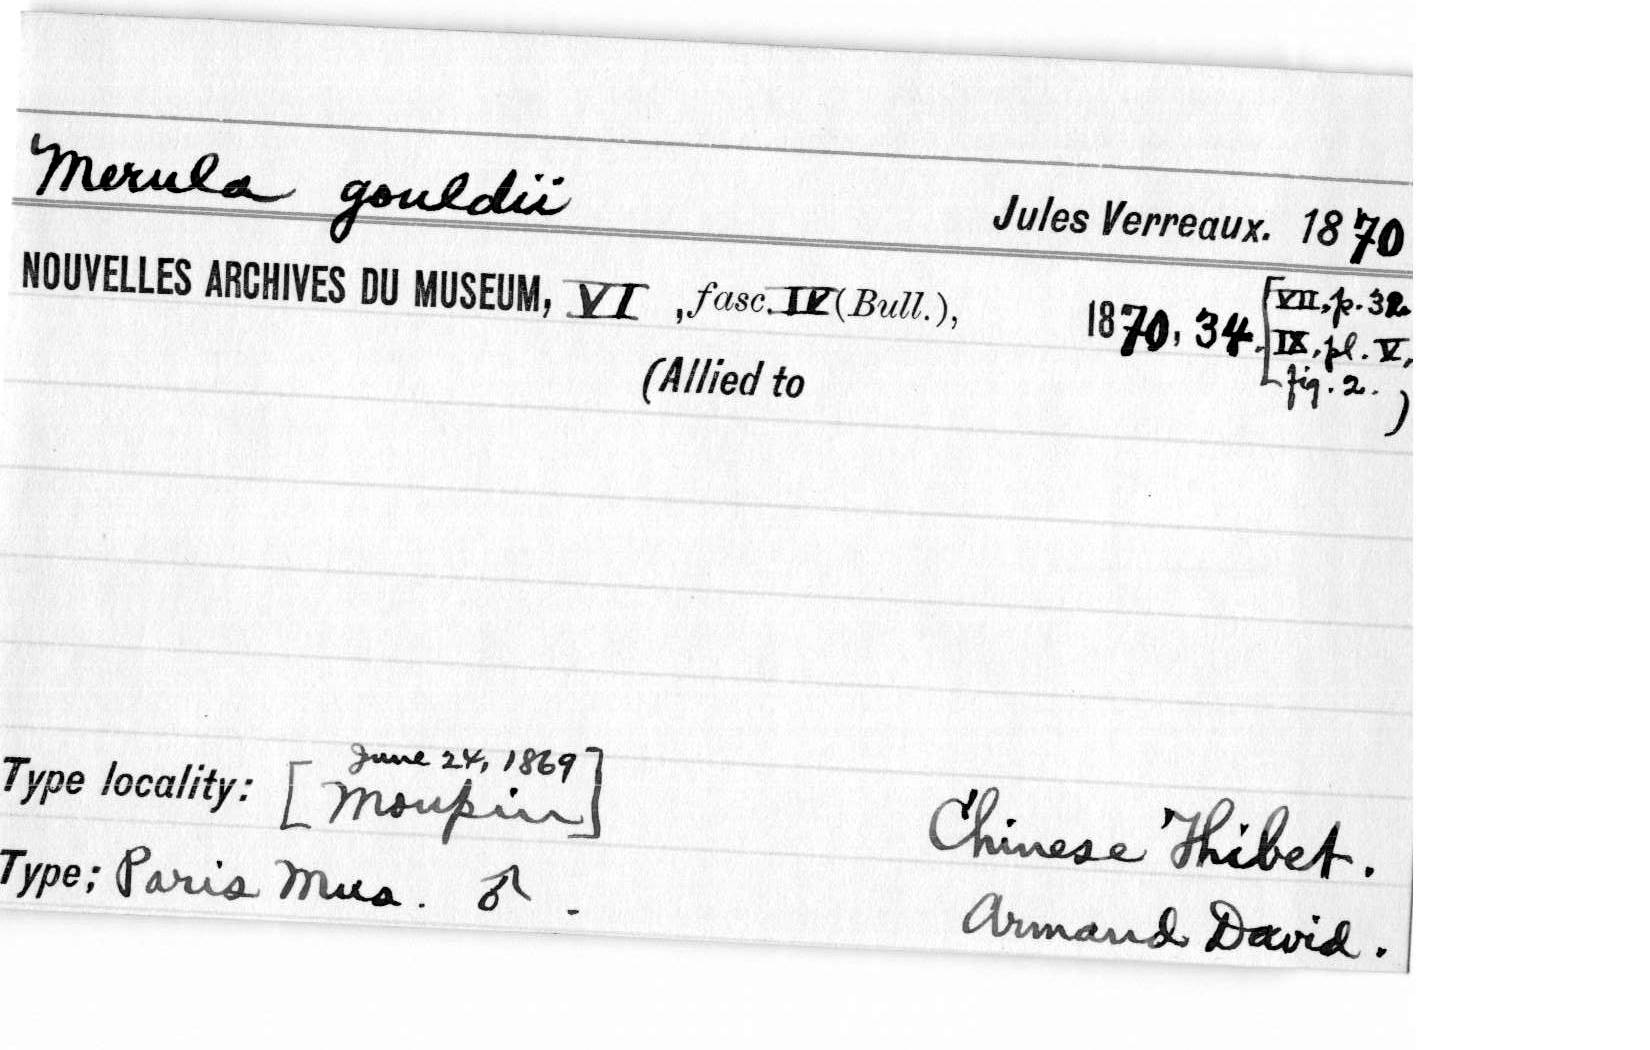 Merula gouldii Jules Verreaux. 1870
NOUVELLES ARCHIVES DU MUSEUM, VI , fasc. IV (Bull.), 1870, 34. [VII, p. 32.
IX, pl. V,
fig. 2.
(Allied to )
June 24, 1869
Type locality: [Moupin] Chinese Thibet.
Type; Paris Mus. ♂. Armand David.